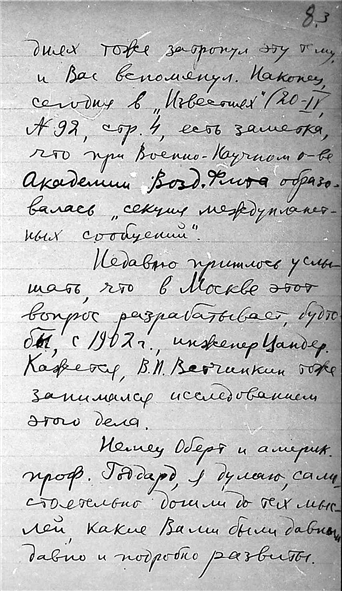 83
днях тоже затронул эту тему
и Вас вспомянул. Наконец,
сегодня в „Известиях" (20-IV,
№ 92, стр. 4, есть заметка,
что при Военно-Научном о-ве
Академии Возд. Флота образо-
валась „секция междупланет-
ных сообщений".
Недавно пришлось услы-
шать, что в Москве этот
вопрос разрабатывает, будто
бы, с 1902 г., инженер Цандер.
Кажется, В.П. Ветчинкин тоже
занимался исследованием
этого дела.
Немец Оберт и америк.
проф. Годдард, я думаю, само
стоятельно дошли до тех мыс-
лей, какие Вами были давным
давно и подробно развиты.